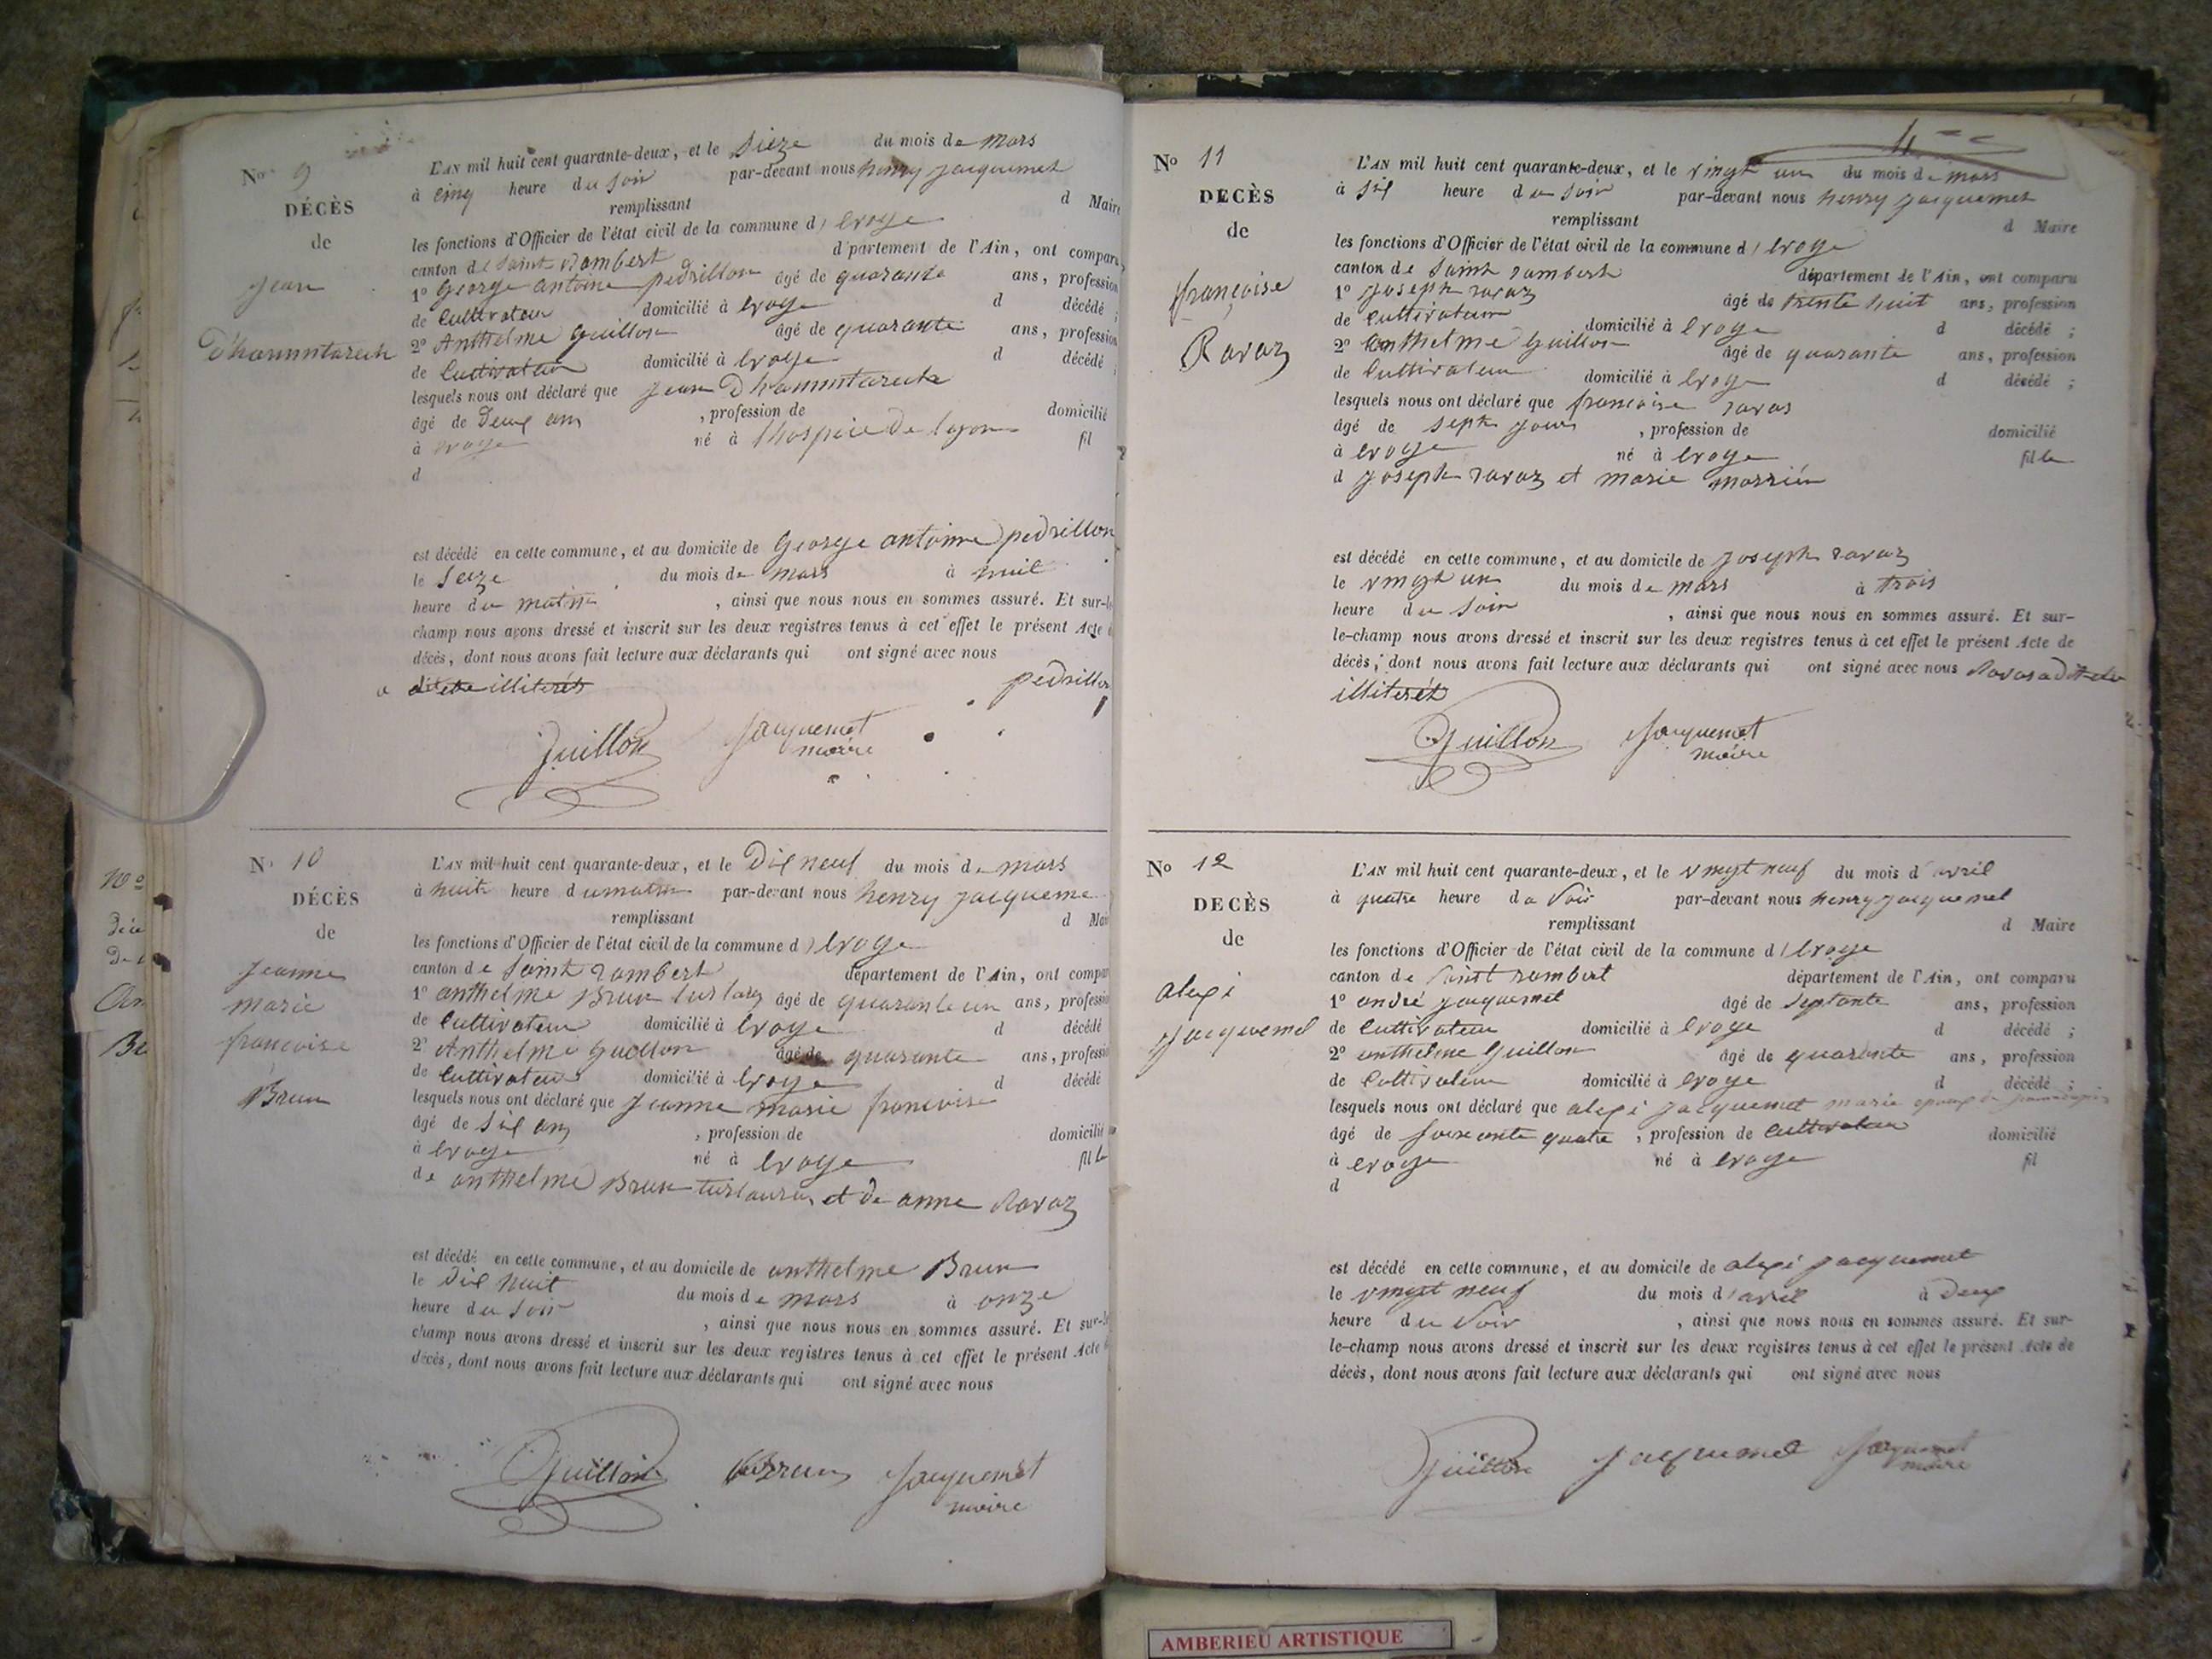 No 9
DÉCÈS
de
jean
L'AN mil huit cent quarante-deux, et le du mois de mars
à cinq heure du soir par-devant nous henry jacquemet
remplissant d Maire
les fonctions d'Officier de l'état civil de la commune d
canton de Saint Rambert département de l'Ain, ont comparu
1o George antoine pedrillon âgé de quarante ans, profession
de Cultivateur domicilié à d décédé ;
2o Anthelme Guillon âgé de quarante ans, profession
de Cultivateur domicilié à d décédé ;
lesquels nous ont déclaré que jean
âgé de deux ans , profession de domicilié
à né à lhospice de lyon fil
d
est décédé en cette commune, et au domicile de George antoine pedrillon
le Seize du mois de mars à huit
heure du matin , ainsi que nous nous en sommes assuré. Et sur-le
champ nous avons dressé et inscrit sur les deux registres tenus à cet effet le présent Acte d
décès, dont nous avons fait lecture aux déclarants qui ont signé avec nous
illiterés pedrillon
Guillon Jacquemet
maire
No 10
DÉCÈS
de
jeanne
marie
francoise
Brun
L'AN mil huit cent quarante-deux, et le dix neuf du mois de mars
à huit heure du matin par-devant nous henry jacqueme
remplissant d Mai
les fonctions d'Officier de l'état civil de la commune d
canton de Saint rambert département de l'Ain, ont compar
1o anthelme Brun âgé de quarante un ans, professio
de Cultivateur domicilié à d décédé
2o Anthelme Guillon âgé de quarante ans, professio
de Cultivateur domicilié à d décédé
lesquels nous ont déclaré que Jeanne marie francoise
âgé de Six ans , profession de domicilié
à né à fille
de anthelme Brun et de anne Ravaz
est décédé en cette commune, et au domicile de anthelme Brun
le dix huit du mois de mars à onze
heure du soir , ainsi que nous nous en sommes assuré. Et sur-le
champ nous avons dressé et inscrit sur les deux registres tenus à cet effet le présent Acte
décès, dont nous avons fait lecture aux déclarants qui ont signé avec nous
Guillon Brun Jacquemet
maire
No 11
DECÈS
de
françoise
Ravaz
L'AN mil huit cent quarante-deux, et le vingt un du mois de mars
à six heure du soir par-devant nous henry jacquemet
remplissant d Maire
les fonctions d'Officier de l'état civil de la commune d
canton de Saint rambert département de l'Ain, ont comparu
1o joseph ravaz âgé de trente huit ans, profession
de Cultivateur domicilié à d décédé ;
2o anthelme Guillon âgé de quarante ans, profession
de Cultivateur domicilié à d décédé ;
lesquels nous ont déclaré que francoise ravas
âgé de sept jours , profession de domicilié
à né à fille
d joseph ravaz et marie
est décédé en cette commune, et au domicile de joseph ravaz
le vingt un du mois de mars à trois
heure du Soir , ainsi que nous nous en sommes assuré. Et sur-
le-champ nous avons dressé et inscrit sur les deux registres tenus à cet effet le présent Acte de
décès, dont nous avons fait lecture aux déclarants qui ont signé avec nous
illiterét
Guillon Jacquemet
maire
No 12
DECÈS
de
alexi
Jacquemet
L'AN mil huit cent quarante-deux, et le vingt neuf du mois d avril
à quatre heure du Soir par-devant nous henry jacquemet
remplissant d Maire
les fonctions d'Officier de l'état civil de la commune d
canton de Saint rambert département de l'Ain, ont comparu
1o andré jacquemet âgé de septante ans, profession
de Cultivateur domicilié à d décédé ;
2o anthelme Guillon âgé de quarante ans, profession
de Cultivateur domicilié à d décédé ;
lesquels nous ont déclaré que alexi jacquemet
âgé de soixante quatre , profession de Cultivateur domicilié
à né à fil
d
est décédé en cette commune, et au domicile de alexi jacquemet
le vingt neuf du mois d avril à deux
heure du Soir , ainsi que nous nous en sommes assuré. Et sur-
le-champ nous avons dressé et inscrit sur les deux registres tenus à cet effet le présent Acte de
décès, dont nous avons fait lecture aux déclarants qui ont signé avec nous
Guillon jacquemet Jacquemet
maire
AMBERIEU ARTISTIQUE